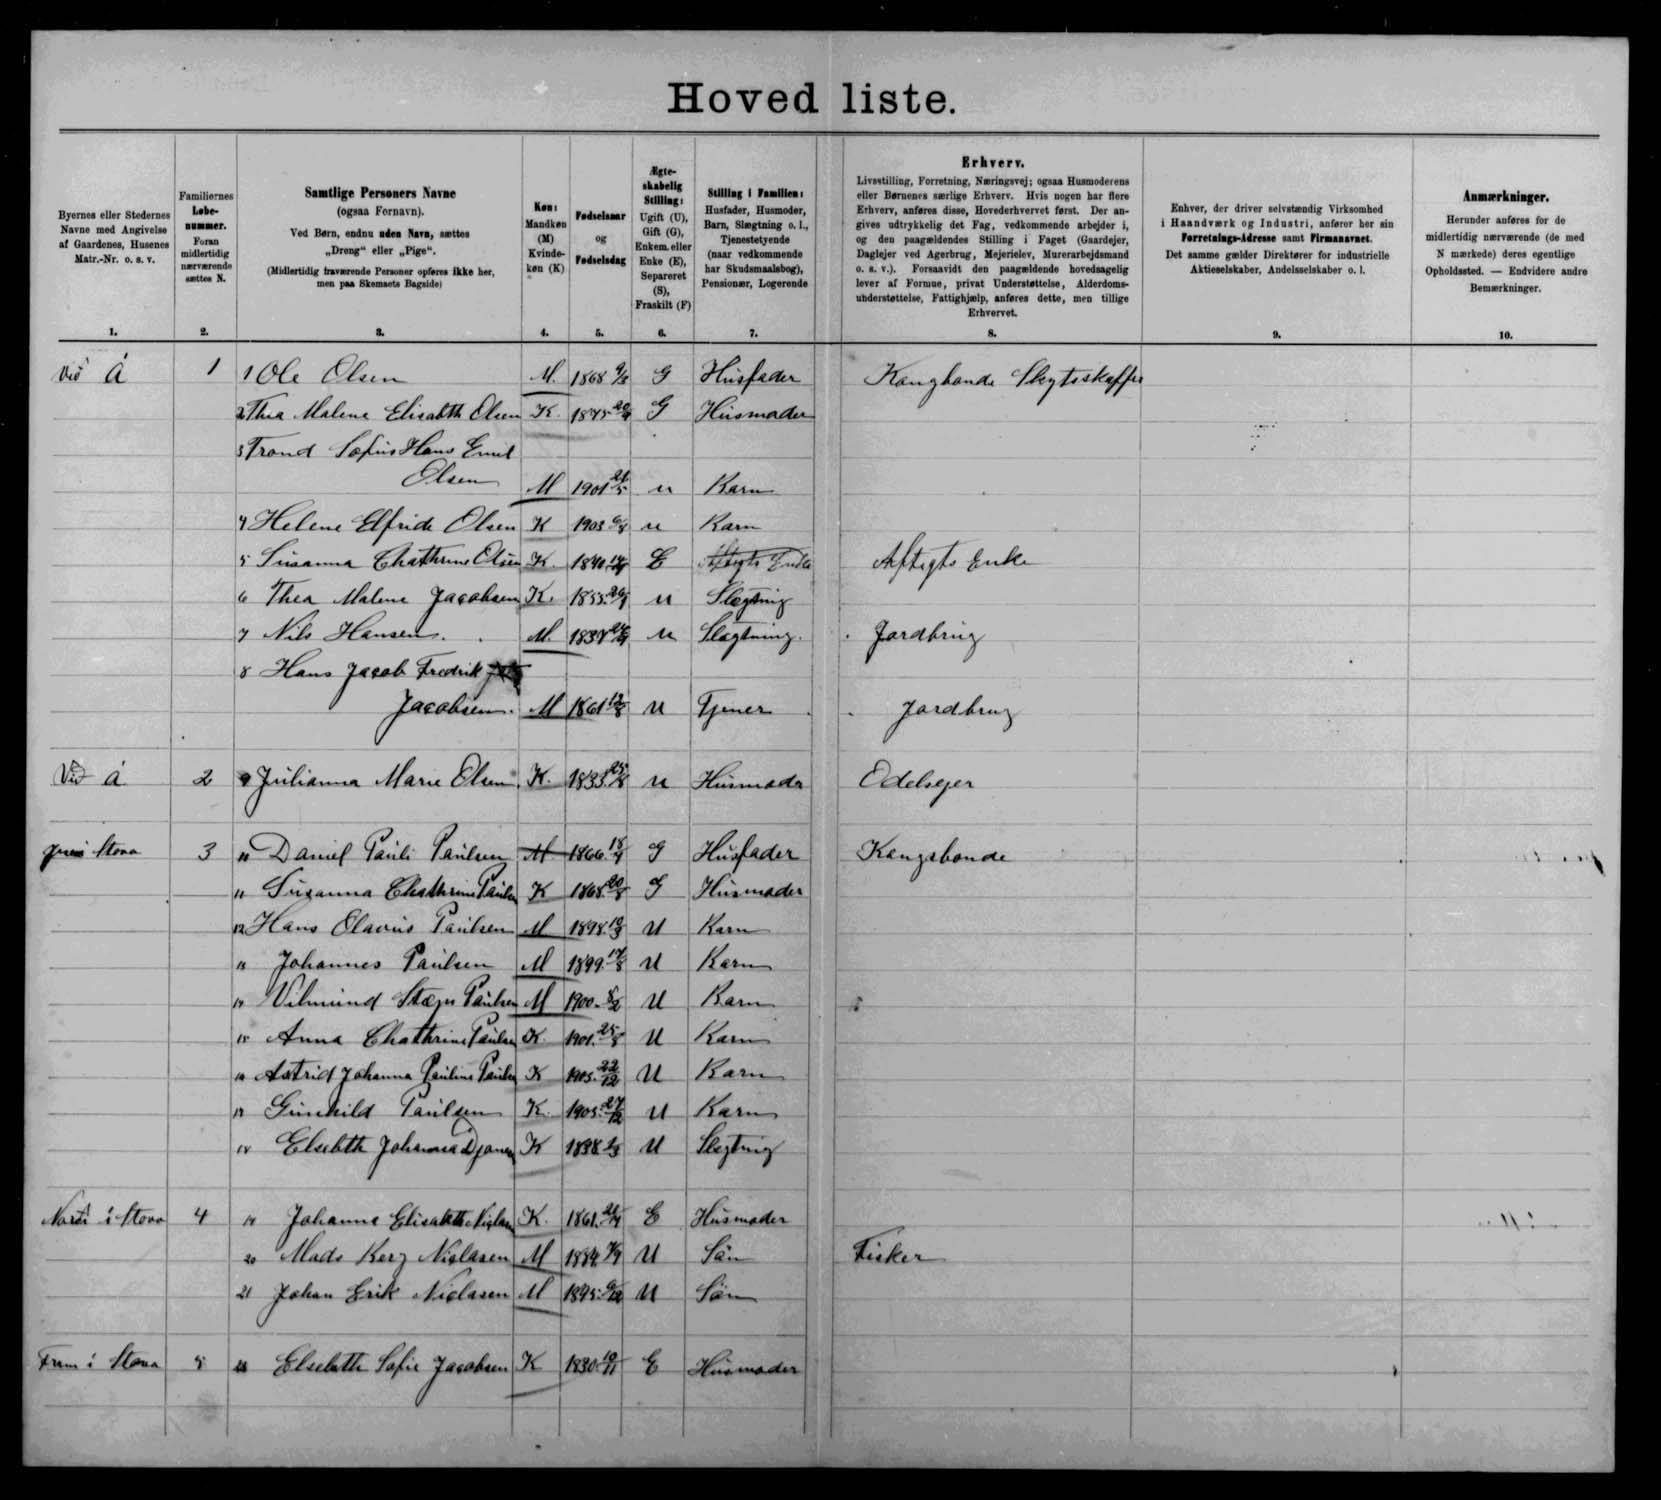 Hoved liste.
Byernes eller Stedernes
Navne med Angivelse
af Gaardenes, Husenes
Matr.-Nr. o. s. v.
1.
Familiernes
Løbe-
nummer.
Foran
midlertidig
nærværende
sættes N.
2.
Samtlige Personers Navne
(ogsaa Fornavn).
Ved Børn, endnu uden Navn, sættes
„Dreng“ eller „Pige“.
(Midlertidig fraværende Personer opføres ikke her,
men paa Skemaets Bagside)
3.
Køn:
Mandkøn
(M)
Kvinde-
køn (K)
4.
Fødselsaar
og
Fødselsdag
5.
Ægte-
skabelig
Stilling:
Ugift (U),
Gift (G),
Enkem. eller
Enke (E),
Separeret
(S),
Fraskilt (F)
6.
Stilling i Familien:
Husfader, Husmoder,
Barn, Slægtning o. l.,
Tjenestetyende
(naar vedkommende
har Skudsmaalsbog),
Pensionær, Logerende
7.
Erhverv.
Livsstilling, Forretning, Næringsvej; ogsaa Husmoderens
eller Børnenes særlige Erhverv. Hvis nogen har flere
Erhverv, anføres disse, Hovederhvervet først. Der an-
gives udtrykkelig det Fag, vedkommende arbejder i,
og den paagældendes Stilling i Faget (Gaardejer,
Daglejer ved Agerbrug, Mejerielev, Murerarbejdsmand
o. s. v.). Forsaavidt den paagældende hovedsagelig
lever af Formue, privat Understøttelse, Alderdoms-
understøttelse, Fattighjælp, anføres dette, men tillige
Erhvervet.
8.
Enhver, der driver selvstændig Virksomhed
i Haandværk og Industri, anfører her sin
Forretnings-Adresse samt Firmanavnet.
Det samme gælder Direktører for industrielle
Aktieselskaber, Andelsselskaber o. l.
9.
Anmærkninger.
Herunder anføres for de
midlertidig nærværende (de med
N mærkede) deres egentlige
Opholdssted. — Endvidere andre
Bemærkninger.
10.
Við Á 1 1 Ole Olsen M. 1868 G Husfader Kongbonde Skytsskaffer
2 Thea Malene Elisabeth Olsen K. 1875 G Husmoder
3 Trond Sofus Hans Emil
Olsen M 1901 21/5 u Barn
4 Helene Elfride Olsen K 1903 6/8 u Barn
5 Susanna Chathrine Olsen K. 1840 E Aftægts Enke Aftægts Enke
6 Thea Malene Jacobsen K. 1855 u Slægtning
7 Nils Hansen. M. u Slægtning. Jordbrug
8 Hans Jacob Fredrik
Jacobsen. M 1861 12/8 U Tjener Jordbrug
Við Á 2 9 Julianna Marie Olsen. K. 1835 u Husmoder Odelsejer
Stova 3 10 Daniel Pauli Paulsen M 1866 G Husfader Kongsbonde
11 Susanna Chathrine Paulsen K 1868 20/8 G Husmoder
12 Hans Olavus Paulsen M 1898 10/3 U Barn
13 Johannes Paulsen M 1899. 17/8 U Barn
14 Vilmund Paulsen M 1900. 8/2 U Barn
15 Anna Chathrine Paulsen K. 1901. 25/8 U Barn
16 Astrid Johanna Pauline Paulsen K 22/12 U Barn
17 Gunhild Paulsen K. 1905. 27/12 U Barn
18 Elsebeth Johanna K U Slægtning
Norði í Stova 4 19 Johanna Elisabeth Niclasen K. 1861. E Husmoder
20 Mads Berg Niclasen M U Søn Fisker
21 Johan Erik Niclasen M 1895. 6/12 U Søn
Fram í Stova 5 22 Elsebeth Sofie Jacobsen K 1830. 10/11 E Husmoder